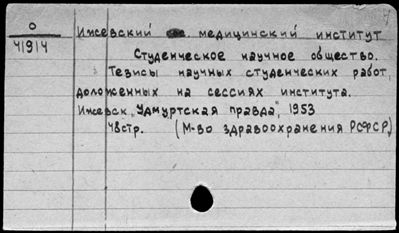 О
41914
Ижевский медицинский институт
Студенческое научное общество.
Тезисы научных студенческих работ,
доложенных на сессиях института.
Ижевск „Удмуртская правда", 1953
48стр. (М-во здравоохранения РСФСР)